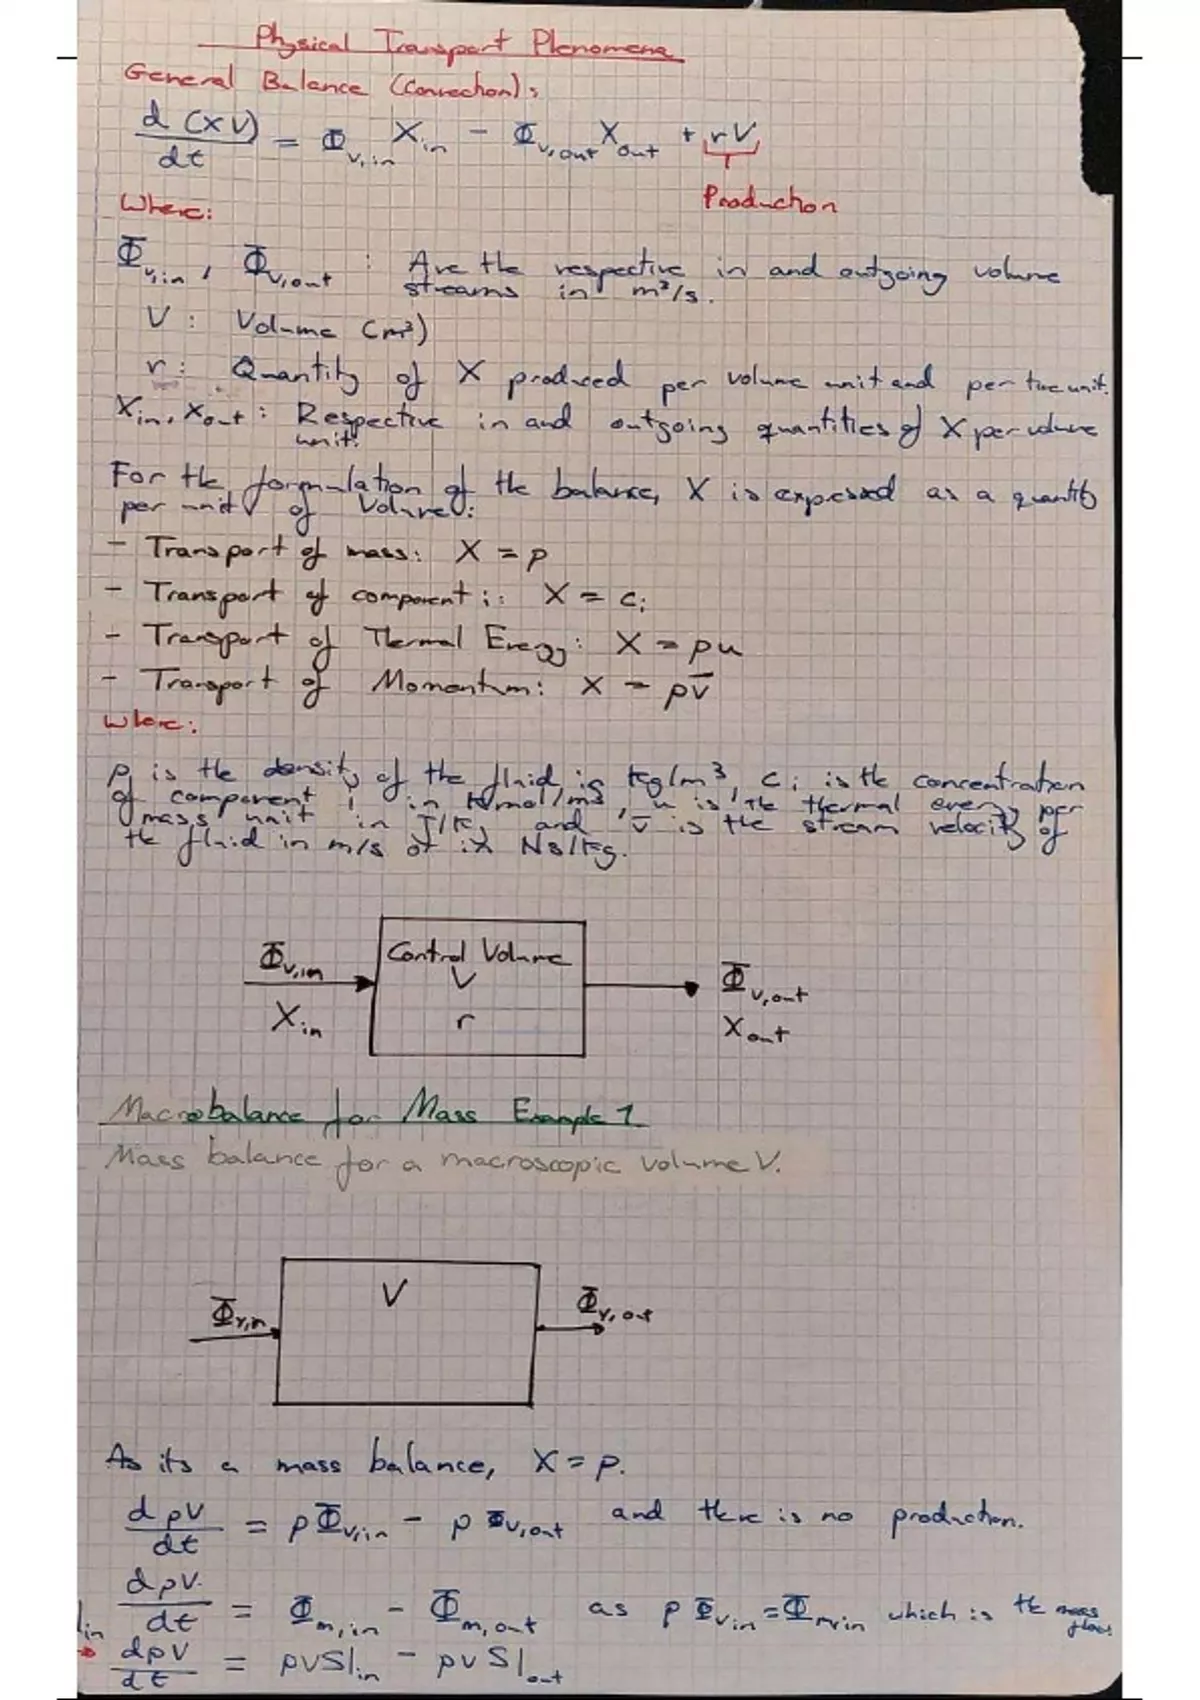 Physical Transport Phenomena
General Balance (Convection):
d(XV)/dt = Φv,in Xin - Φv,out Xout + rV
Production
Where:
Φv,in, Φv,out : Are the respective in and outgoing volume
streams in m³/s.
V : Volume (m³)
r : Quantity of X produced per volume unit and per time unit.
Xin, Xout : Respective in and outgoing quantities of X per volume
unit.
For the formulation of the balance, X is expressed as a quantity
per unit of Volume:
- Transport of mass: X = ρ
- Transport of component i: X = ci
- Transport of Thermal Energy: X = ρu
- Transport of Momentum: X = ρv̄
Where:
ρ is the density of the fluid in kg/m³, ci is the concentration
of component i in kmol/m³, u is the thermal energy per
mass unit in J/kg and v̄ is the stream velocity of
the fluid in m/s or in Ns/kg.
Φv,in
Xin
Control Volume
V
r
Φv,out
Xout
Macrobalance for Mass Example 1
Mass balance for a macroscopic volume V.
Φv,in
V
Φv,out
As its a mass balance, X = ρ.
dρV/dt = ρΦv,in - ρΦv,out and there is no production.
dρV/dt = Φm,in - Φm,out as ρΦv,in = Φm,in which is the mass
flow.
dρV/dt = ρvS|in - ρvS|out